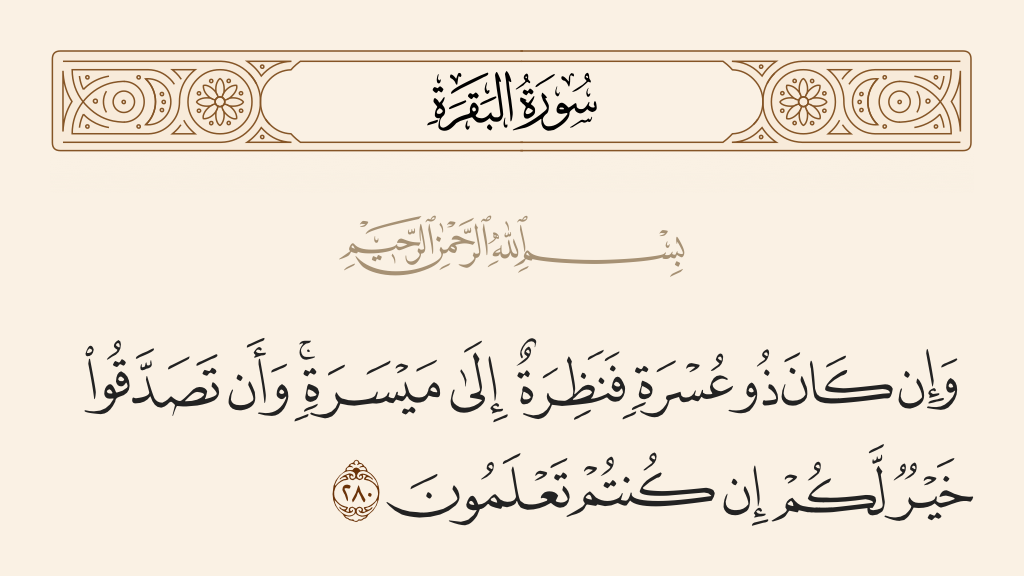 سُورَةُ البَقَرَةِ
بِسْمِ ٱللَّهِ ٱلرَّحْمَٰنِ ٱلرَّحِيمِ
وَإِن كَانَ ذُو عُسْرَةٍ فَنَظِرَةٌ إِلَىٰ مَيْسَرَةٍ ۚ وَأَن تَصَدَّقُوا۟
خَيْرٌ لَّكُمْ إِن كُنتُمْ تَعْلَمُونَ ٢٨٠